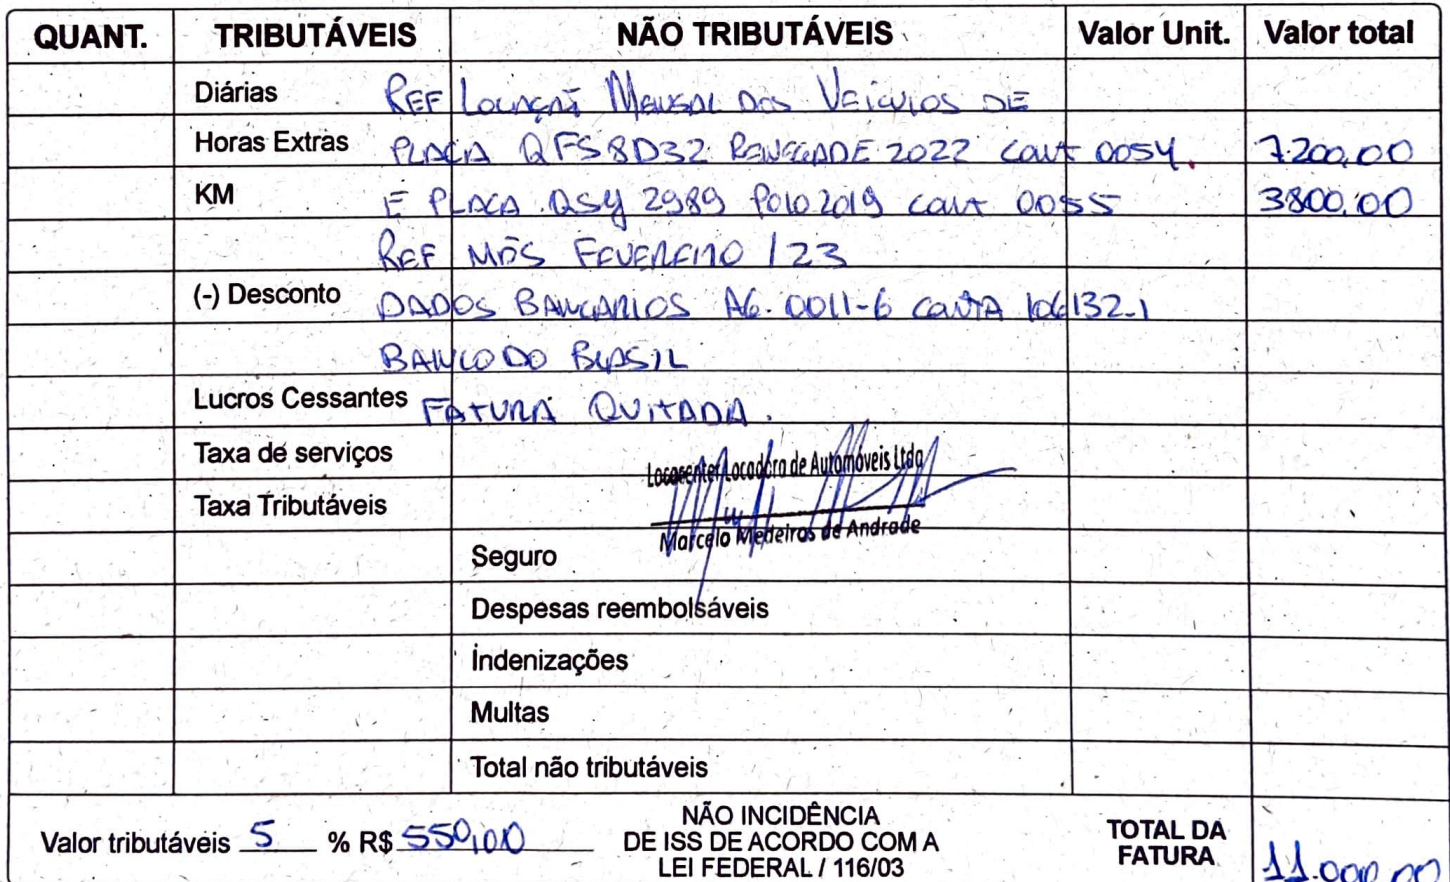 QUANT. TRIBUTÁVEIS NÃO TRIBUTÁVEIS Valor Unit. Valor total
Diárias REF Locação Mensal dos Veiculos DE
Horas Extras PLACA QFS8D32 RENEGADE 2022 cont 0054. 7.200,00
KM E PLACA QSY 2989 Polo 2019 cont 0055 3800,00
REF MÊS FEVEREIRO / 23
(-) Desconto DADOS BANCARIOS AG. 0011-6 CONTA 106132-1
BANCO DO BRASIL
Lucros Cessantes FATURA QUITADA.
Taxa de serviços Locacenter Locadora de Automóveis Ltda
Taxa Tributáveis
Marcelo Medeiros de Andrade
Seguro
Despesas reembolsáveis
Indenizações
Multas
Total não tributáveis
Valor tributáveis 5 % R$ 550,00
NÃO INCIDÊNCIA
DE ISS DE ACORDO COM A
LEI FEDERAL / 116/03
TOTAL DA
FATURA
11.000,00